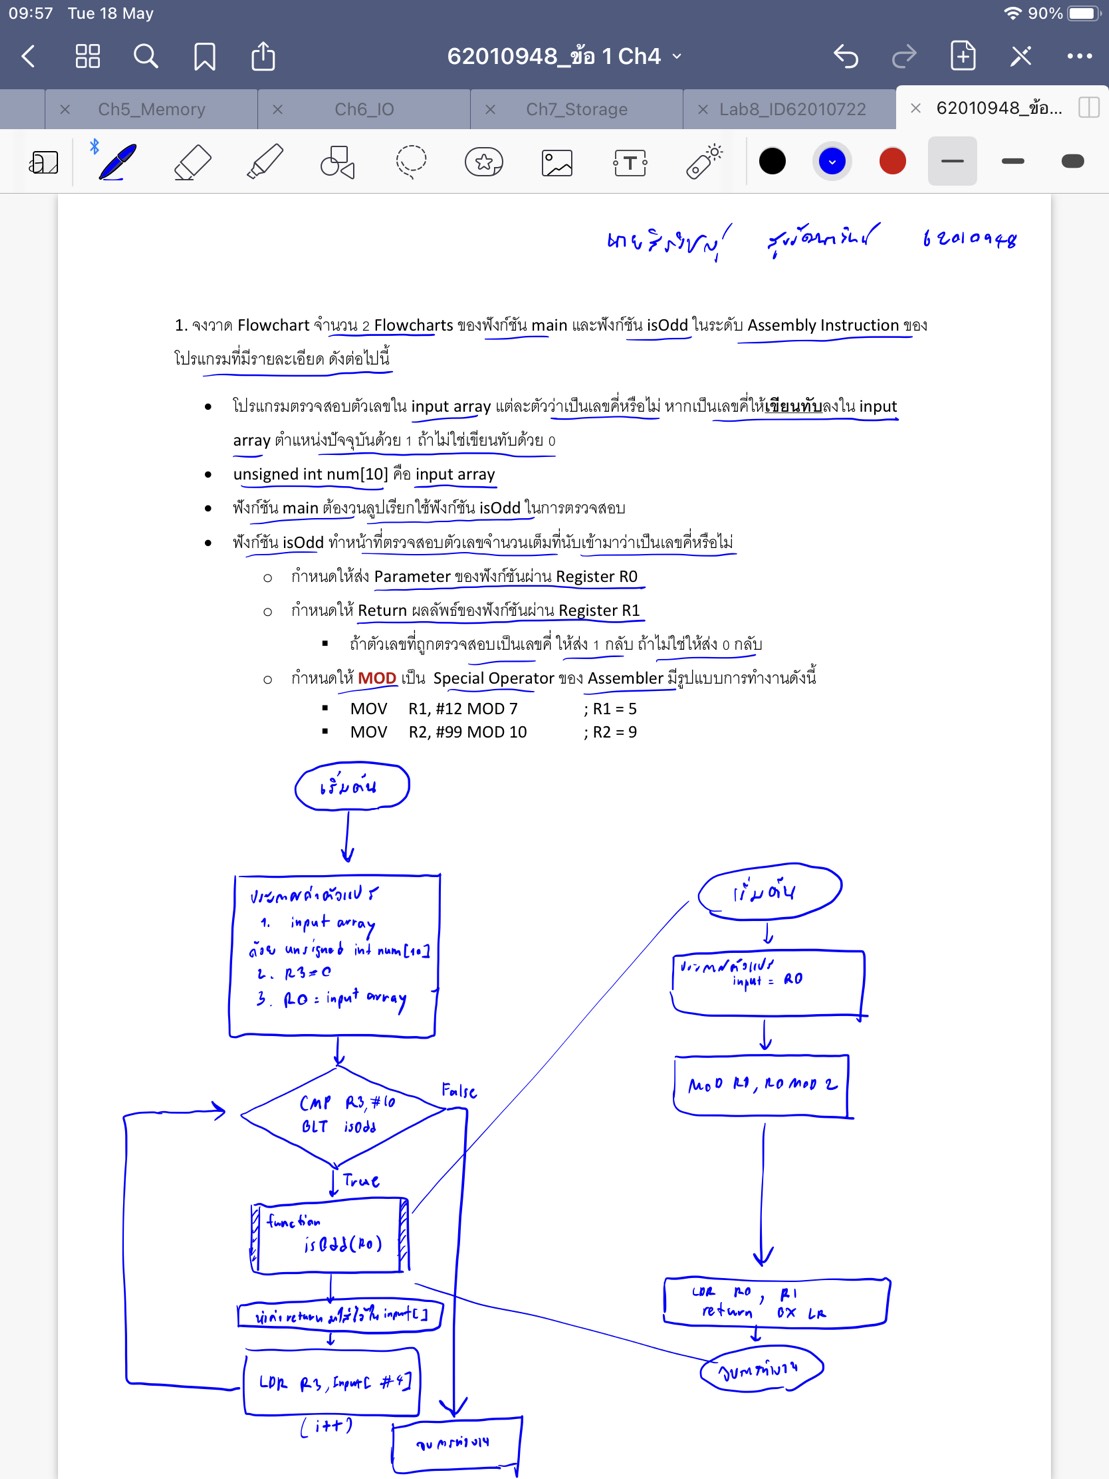 09:57 Tue 18 May
90%
62010948_ข้อ 1 Ch4
Ch5_Memory
Ch6_IO
Ch7_Storage
Lab8_ID62010722
62010948_ข้อ...
62010948
1. จงวาด Flowchart จำนวน 2 Flowcharts ของฟังก์ชัน main และฟังก์ชัน isOdd ในระดับ Assembly Instruction ของ
โปรแกรมที่มีรายละเอียด ดังต่อไปนี้
• โปรแกรมตรวจสอบตัวเลขใน input array แต่ละตัวว่าเป็นเลขคี่หรือไม่ หากเป็นเลขคี่ให้เขียนทับลงใน input
array ตำแหน่งปัจจุบันด้วย 1 ถ้าไม่ใช่เขียนทับด้วย 0
• unsigned int num[10] คือ input array
• ฟังก์ชัน main ต้องวนลูปเรียกใช้ฟังก์ชัน isOdd ในการตรวจสอบ
• ฟังก์ชัน isOdd ทำหน้าที่ตรวจสอบตัวเลขจำนวนเต็มที่นับเข้ามาว่าเป็นเลขคี่หรือไม่
o กำหนดให้ส่ง Parameter ของฟังก์ชันผ่าน Register R0
o กำหนดให้ Return ผลลัพธ์ของฟังก์ชันผ่าน Register R1
▪ ถ้าตัวเลขที่ถูกตรวจสอบเป็นเลขคี่ ให้ส่ง 1 กลับ ถ้าไม่ใช่ให้ส่ง 0 กลับ
o กำหนดให้ MOD เป็น Special Operator ของ Assembler มีรูปแบบการทำงานดังนี้
▪ MOV R1, #12 MOD 7 ; R1 = 5
▪ MOV R2, #99 MOD 10 ; R2 = 9
เริ่มต้น
ประกาศค่าตัวแปร
1. input array
ด้วย unsigned int num[10]
2. R3=0
3. R0 = input array
CMP R3, #10
BLT isOdd
False
True
function
isOdd(R0)
นำค่า return มาใส่ไว้ใน input[]
LDR R3, Input[ #4]
(i++)
จบการทำงาน
เริ่มต้น
ประกาศตัวแปร
input = R0
MOD R1, R0 MOD 2
LDR R0, R1
return BX LR
จบการทำงาน